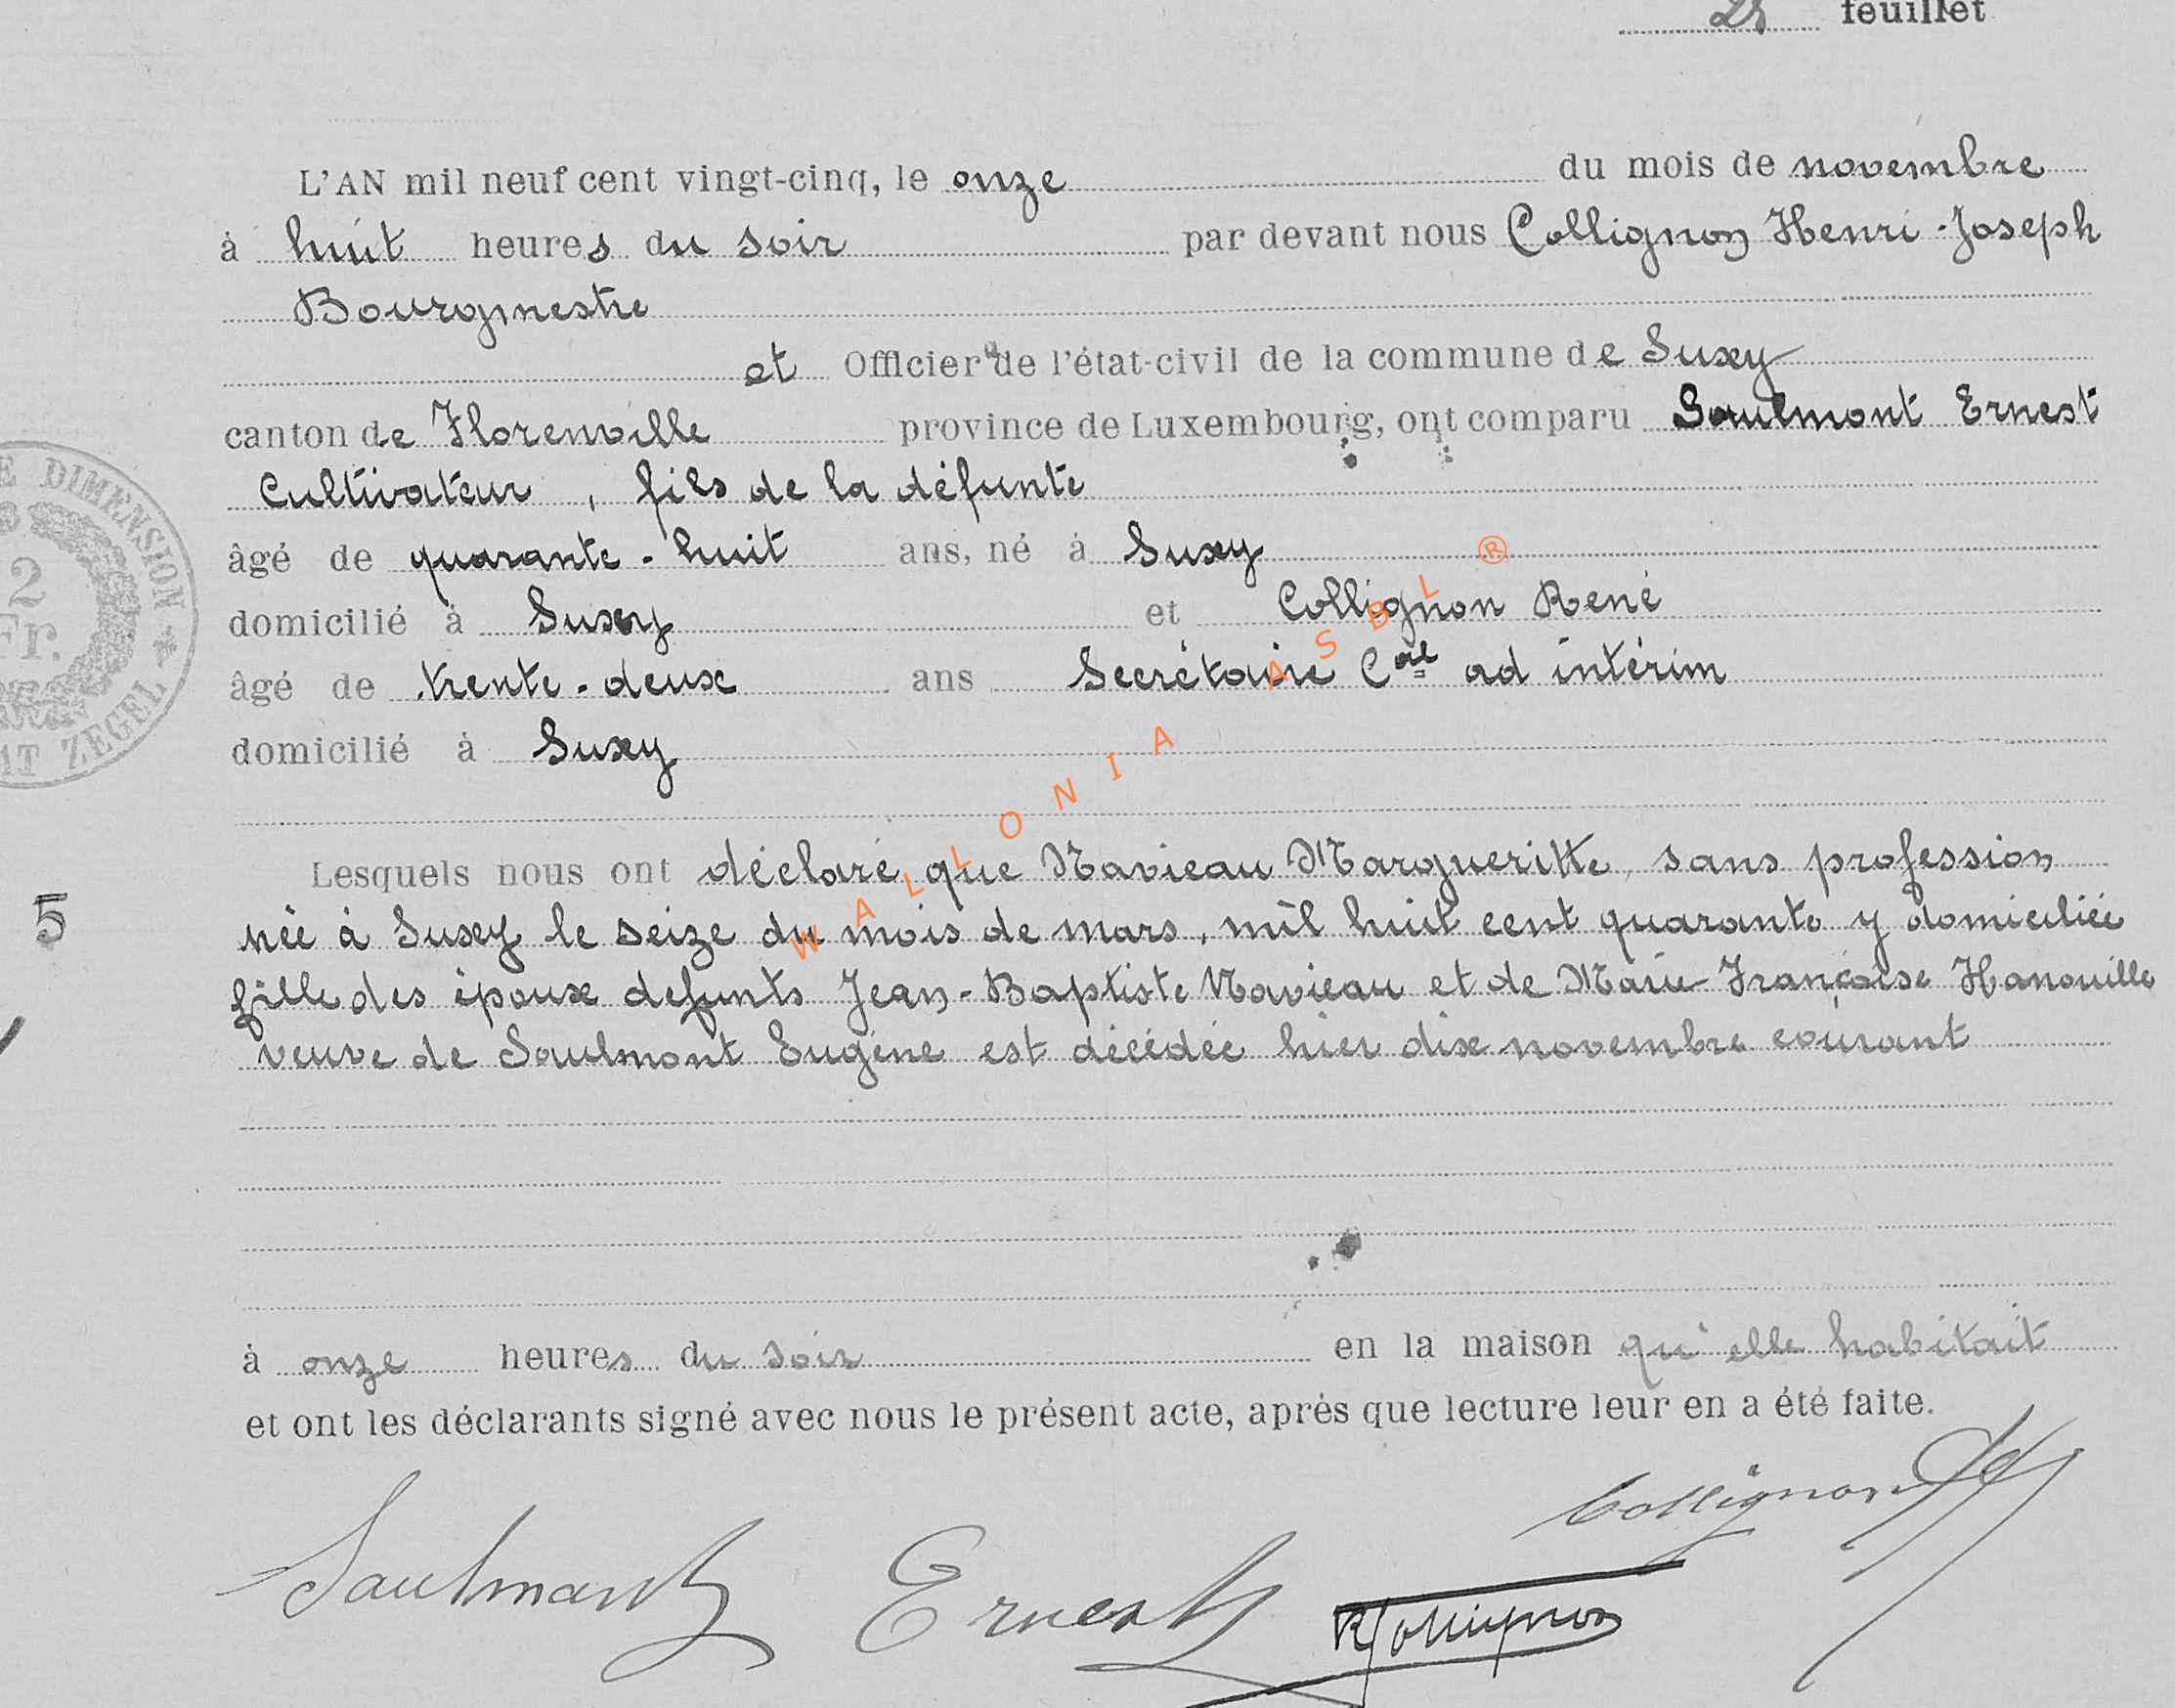 feuillet
L'AN mil neuf cent vingt-cinq, le onze du mois de novembre
à huit heures du soir par devant nous Collignon Henri-Joseph
Bourgmestre
et Officier de l'état-civil de la commune de Suxy
canton de Florenville province de Luxembourg, ont comparu Saulmont Ernest
Cultivateur, fils de la défunte
âgé de quarante-huit ans, né à Suxy
domicilié à Suxy et Collignon René
âgé de trente-deux ans Secrétaire Cal ad intérim
domicilié à Suxy
Lesquels nous ont déclaré que Navieau Margueritte, sans profession
née à Suxy le seize du mois de mars, mil huit cent quarante y domiciliée
fille des époux defunts Jean-Baptiste Navieau et de Marie-Françoise Hanouille
veuve de Saulmont Eugène est décédée hier dix novembre courant
à onze heures du soir en la maison qu'elle habitait
et ont les déclarants signé avec nous le présent acte, après que lecture leur en a été faite.
Collignon
Saulmont Ernest
R Collignon
5
E DIMENSION
2
Fr.
AT ZEGEL
WALLONIA ASBL ®